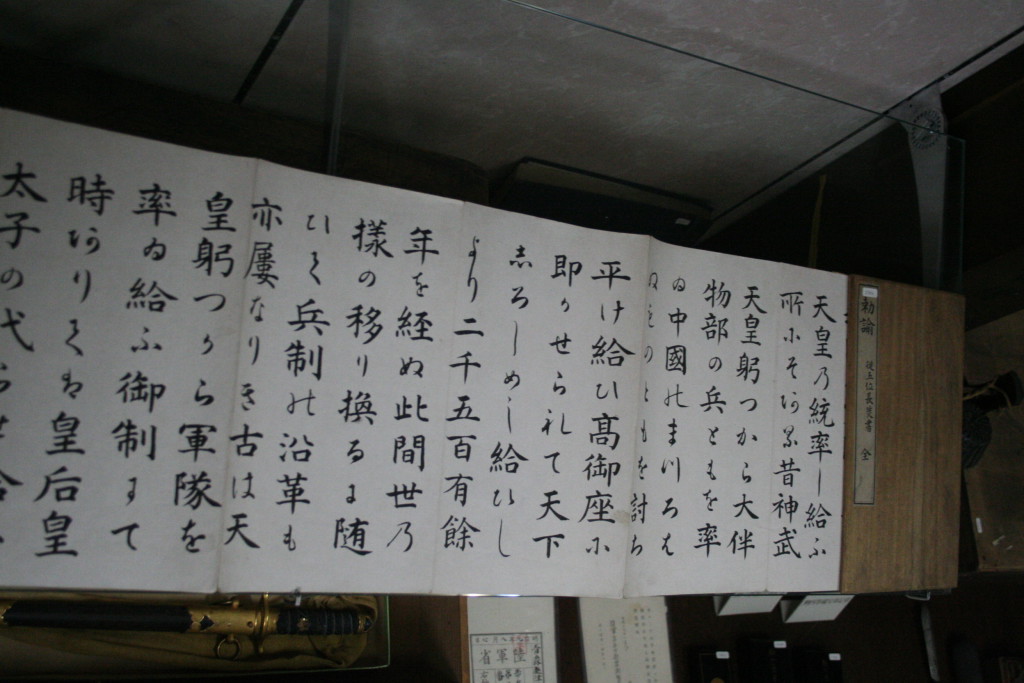 勅諭
全
天皇の統率し給ふ
所にそある昔神武
天皇躬つから大伴
物部の兵ともを率
ゐ中國のまつろは
ぬものともを討ち
平け給ひ髙御座に
即かせられて天下
志ろしめし給ひし
より二千五百有餘
年を經ぬ此間世の
樣の移り換るに随
ひて兵制の沿革も
亦屢なりき古は天
皇躬つから軍隊を
率ゐ給ふ御制にて
時ありては皇后皇
太子の代らせ給
陸軍省